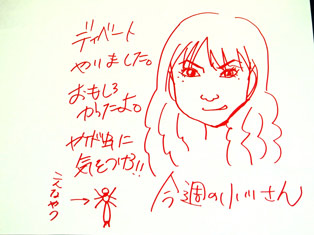 ディベート
やりました。
おもしろ
かったよ。
ヤガ虫に
気をつけろ!!
こんなやつ
→
今週の小川さん